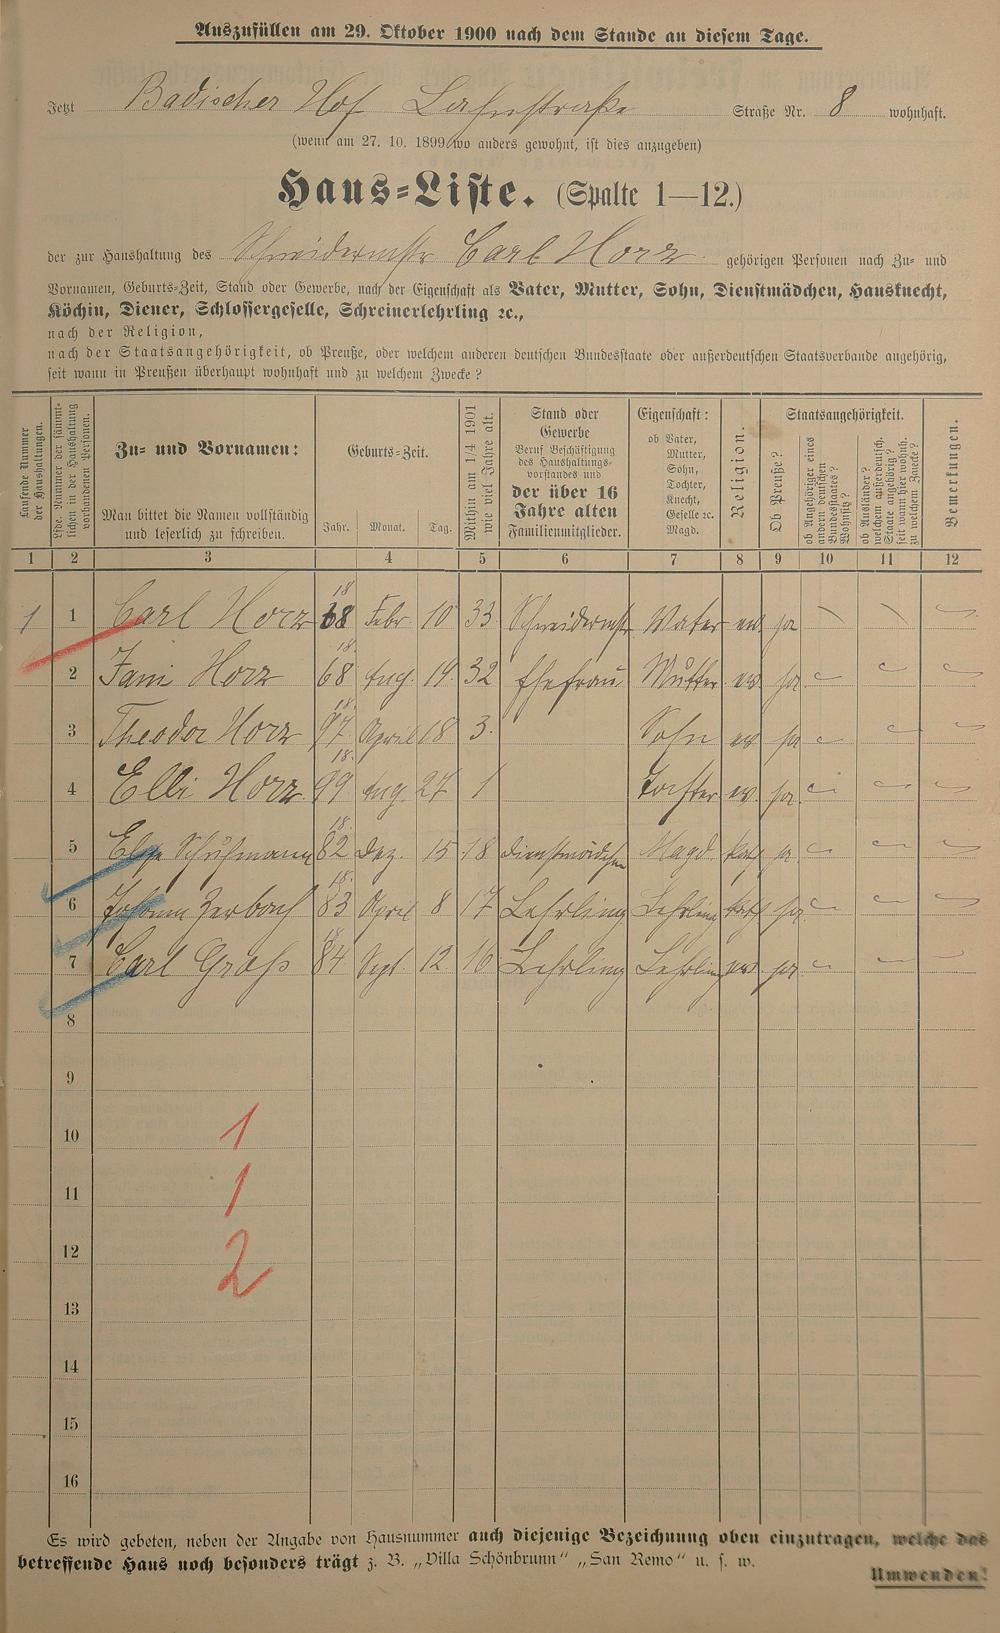 Auszufüllen am 29. Oktober 1900 nach dem Stande an diesem Tage.
Jetzt Badischer Hof Lahnstraße Straße Nr. 8 wohnhaft.
(wenn am 27. 10. 1899 wo anders gewohnt, ist dies anzugeben)
Haus-Liste. (Spalte 1—12.)
der zur Haushaltung des Schneidermstr Carl Horz gehörigen Personen nach Zu- und
Vornamen, Geburts-Zeit, Stand oder Gewerbe, nach der Eigenschaft als Vater, Mutter, Sohn, Dienstmädchen, Hausknecht,
Köchin, Diener, Schlossergeselle, Schreinerlehrling ꝛc.,
nach der Religion,
nach der Staatsangehörigkeit, ob Preuße, oder welchem anderen deutschen Bundesstaate oder außerdeutschen Staatsverbande angehörig,
seit wann in Preußen überhaupt wohnhaft und zu welchem Zwecke?
Laufende Nummer der Haushaltungen.
Lfde. Nummer der sämmtlichen in der Haushaltung vorhandenen Personen.
Zu- und Vornamen:
Man bittet die Namen vollständig
und leserlich zu schreiben.
Geburts-Zeit.
Jahr. Monat. Tag.
Mithin am 1/4 1901 wie viel Jahre alt.
Stand oder
Gewerbe
Beruf Beschäftigung
des Haushaltungs-
vorstandes und
der über 16
Jahre alten
Familienmitglieder.
Eigenschaft:
ob Vater,
Mutter,
Sohn,
Tochter,
Knecht,
Geselle ꝛc.
Magd.
Religion.
Staatsangehörigkeit.
Ob Preuße?
ob Angehöriger eines andern deutschen Bundesstaates? Wohnsitz?
ob Ausländer? welchem außerdeutsch. Staate angehörig? seit wann hier wohnh. zu welchem Zwecke?
Bemerkungen.
1 2 3 4 5 6 7 8 9 10 11 12
1 1 Carl Horz 1868 Febr 10 33 Schneidermstr Vater ev. ja
2 Fani Horz 1868 Aug. 19. 32 Ehefrau Mutter ev. ja
3 Theodor Horz 1897 April 18 3. Sohn ev ja
4 Elli Horz 1899 Aug. 27 1 Tochter ev. ja
5 Schuhmann 1882 Dez. 15 18 Dienstmädchen Magd. kath ja
6 Johann Zerbach 1883 April 8 17 Lehrling Lehrling kath ja
7 Carl Groß 1884 Sept. 12 16 Lehrling Lehrling ev. ja
8
9
10
1
11
1
12
2
13
14
15
16
Es wird gebeten, neben der Angabe von Hausnummer auch diejenige Bezeichnung oben einzutragen, welche das
betreffende Haus noch besonders trägt z. B. „Villa Schönbrunn“ „San Remo“ u. s. w.
Umwenden!